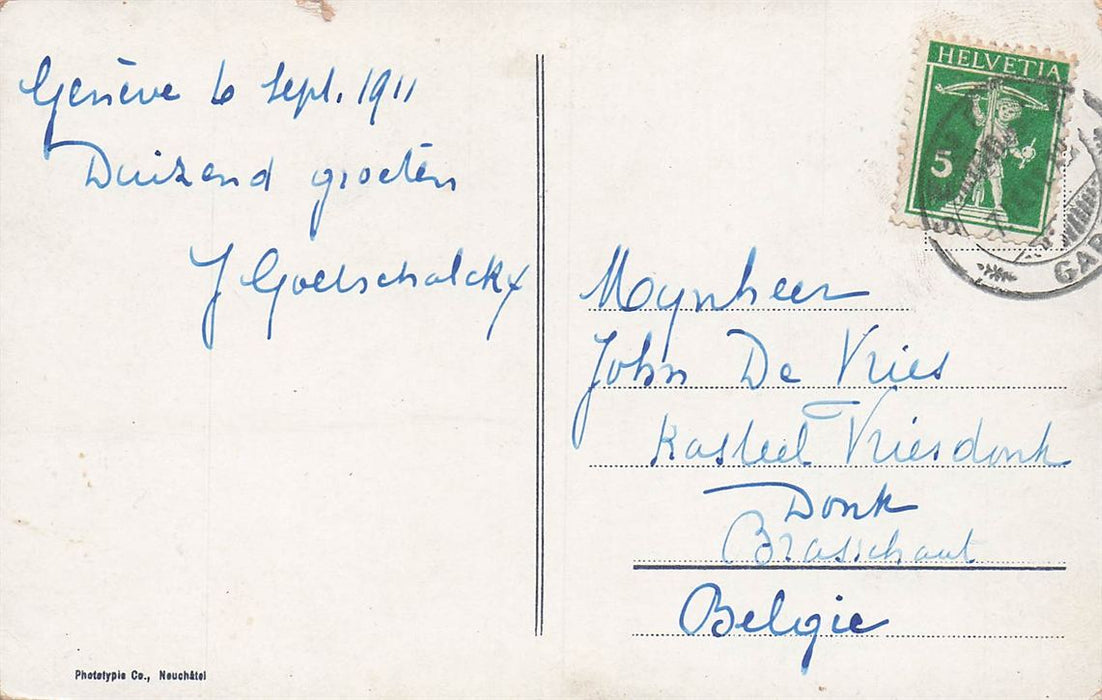 Genève 6 Sept. 1911
Duizend groeten
J Goetschalckx
Phototypie Co., Neuchâtel
HELVETIA
5
GAR
Mynheer
John De Vries
Kasteel Vriesdonk
Donk
Brasschaat
Belgie